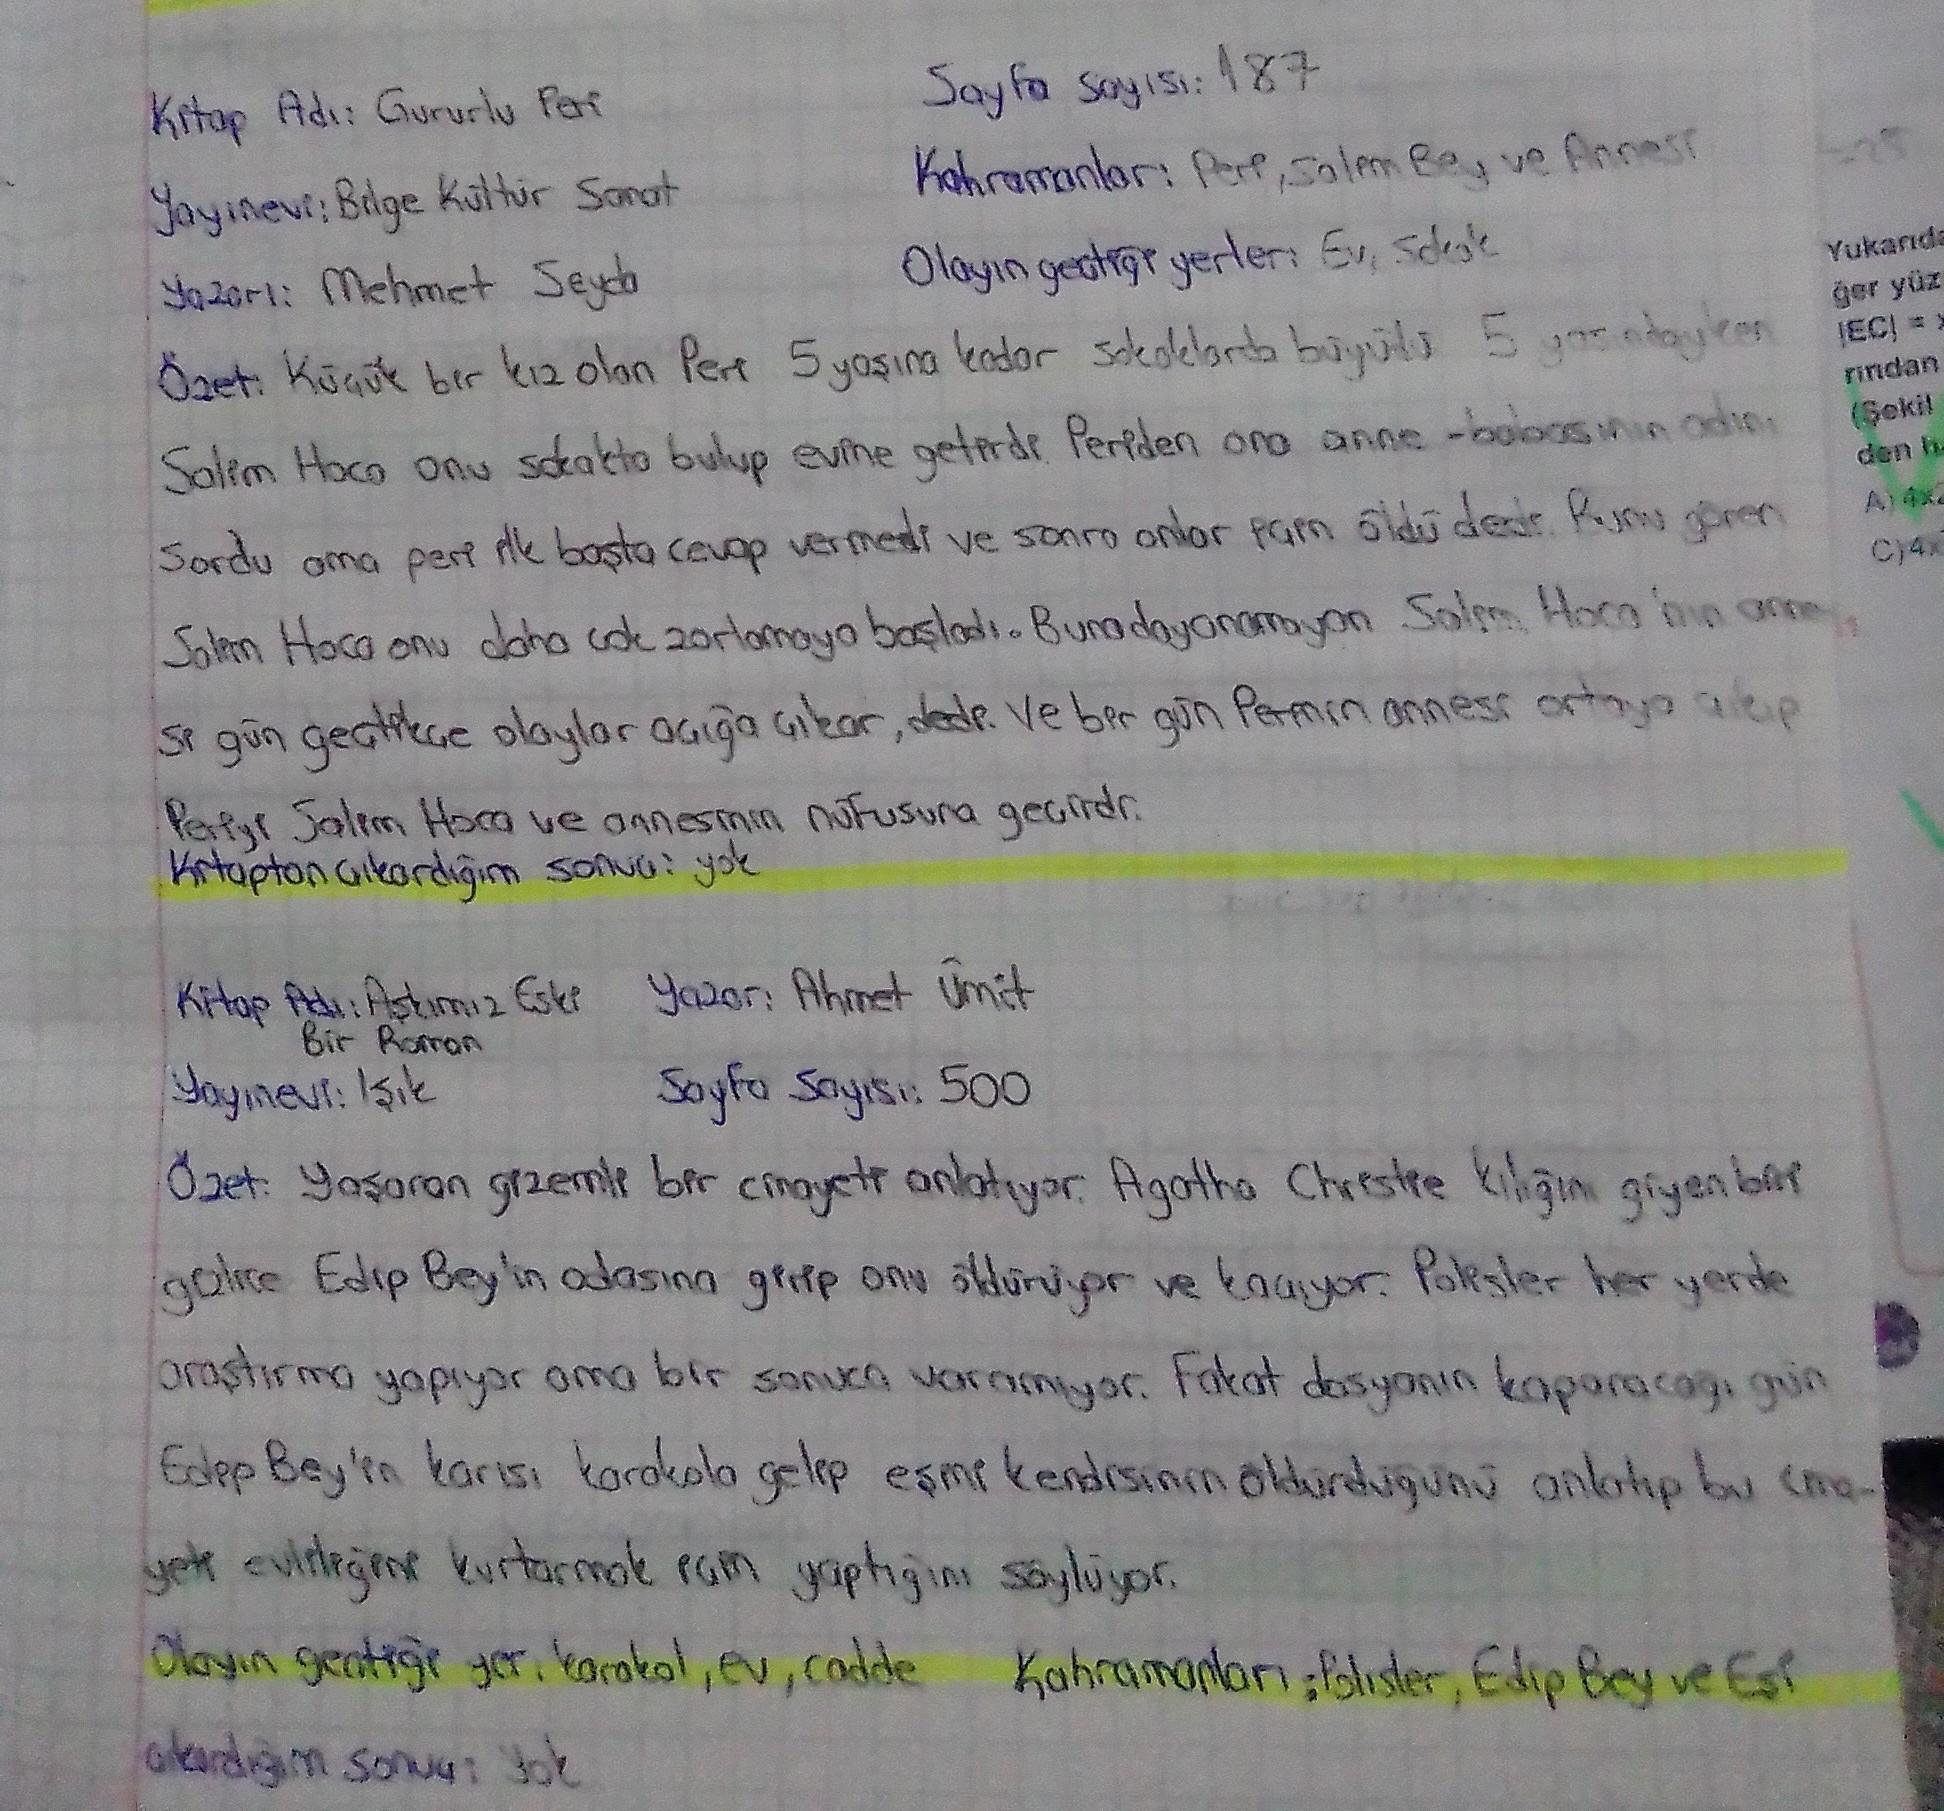 Kitap Adı: Gururlu Peri
Sayfa sayısı: 187
Yayınevi: Bilge Kültür Sanat
Kahramanlar: Peri, Salim Bey ve Annesi
Yazarı: Mehmet Seyda
Olayın geçtiği yerler: Ev, Sokak
Özet: Küçük bir kız olan Peri 5 yaşına kadar sokaklarda büyüdü 5 yaşındayken
Salim Hoca onu sokakta bulup evine getirdi. Periden ona anne-babasının adını
Sordu ama peri ilk başta cevap vermedi ve sonra onlar için öldü dedi. Bunu gören
Salim Hoca onu daha çok zorlamaya başladı. Buna dayanamayan Salim Hoca'nın anne
si gün geçtikçe olaylar açığa çıkar, dedi. Ve bir gün Perinin annesi ortaya çıkıp
Periyi Salim Hoca ve annesinin nüfusuna geçirdi.
Kitaptan çıkardığım sonuç: yok
Kitap Adı: Aşkımız Eski
Bir Roman
Yazar: Ahmet Ümit
Yayınevi: Işık
Sayfa Sayısı: 500
Özet: Yaşaran gizemli bir cinayeti anlatıyor. Agatha Christie kılığını giyen biri
gizlice Edip Bey'in odasına girip onu öldürüyor ve kaçıyor. Polisler her yerde
araştırma yapıyor ama bir sonuca varamıyor. Fakat dosyanın kapanacağı gün
Edip Bey'in karısı karakola gelip eşini kendisinin öldürdüğünü anlatıp bu cina-
yeti evliliğini kurtarmak için yaptığını söylüyor.
Olayın geçtiği yer: karakol, ev, cadde
Kahramanları: Polisler, Edip Bey ve Eşi
çıkardığım sonuç: Yok
Yukarıda
ğer yüz
|EC| =
rından
(Şekil
den
A) 4x2
C) 4x